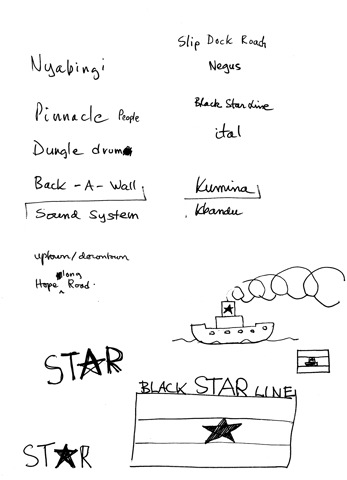 Slip Dock Road
Nyabingi
Negus
Pinnacle People
Black Star Line
ital
Dungle drums
Back-A-Wall
Kumina
Sound System
Kbandu
uptown/downtown
long
Hope Road.
STAR
BLACK STAR LINE
STAR